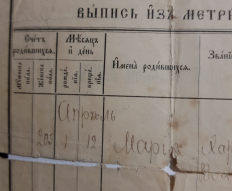 ВЫПИСЬ ИЗЪ МЕТРИ
Счетъ родившихся.
Мѣсяцъ и день
Имена родившихся.
Звані
Мужеска пола.
Женска пола.
рожде- нія.
креще- нія.
Апрель
203 1 12 Марія